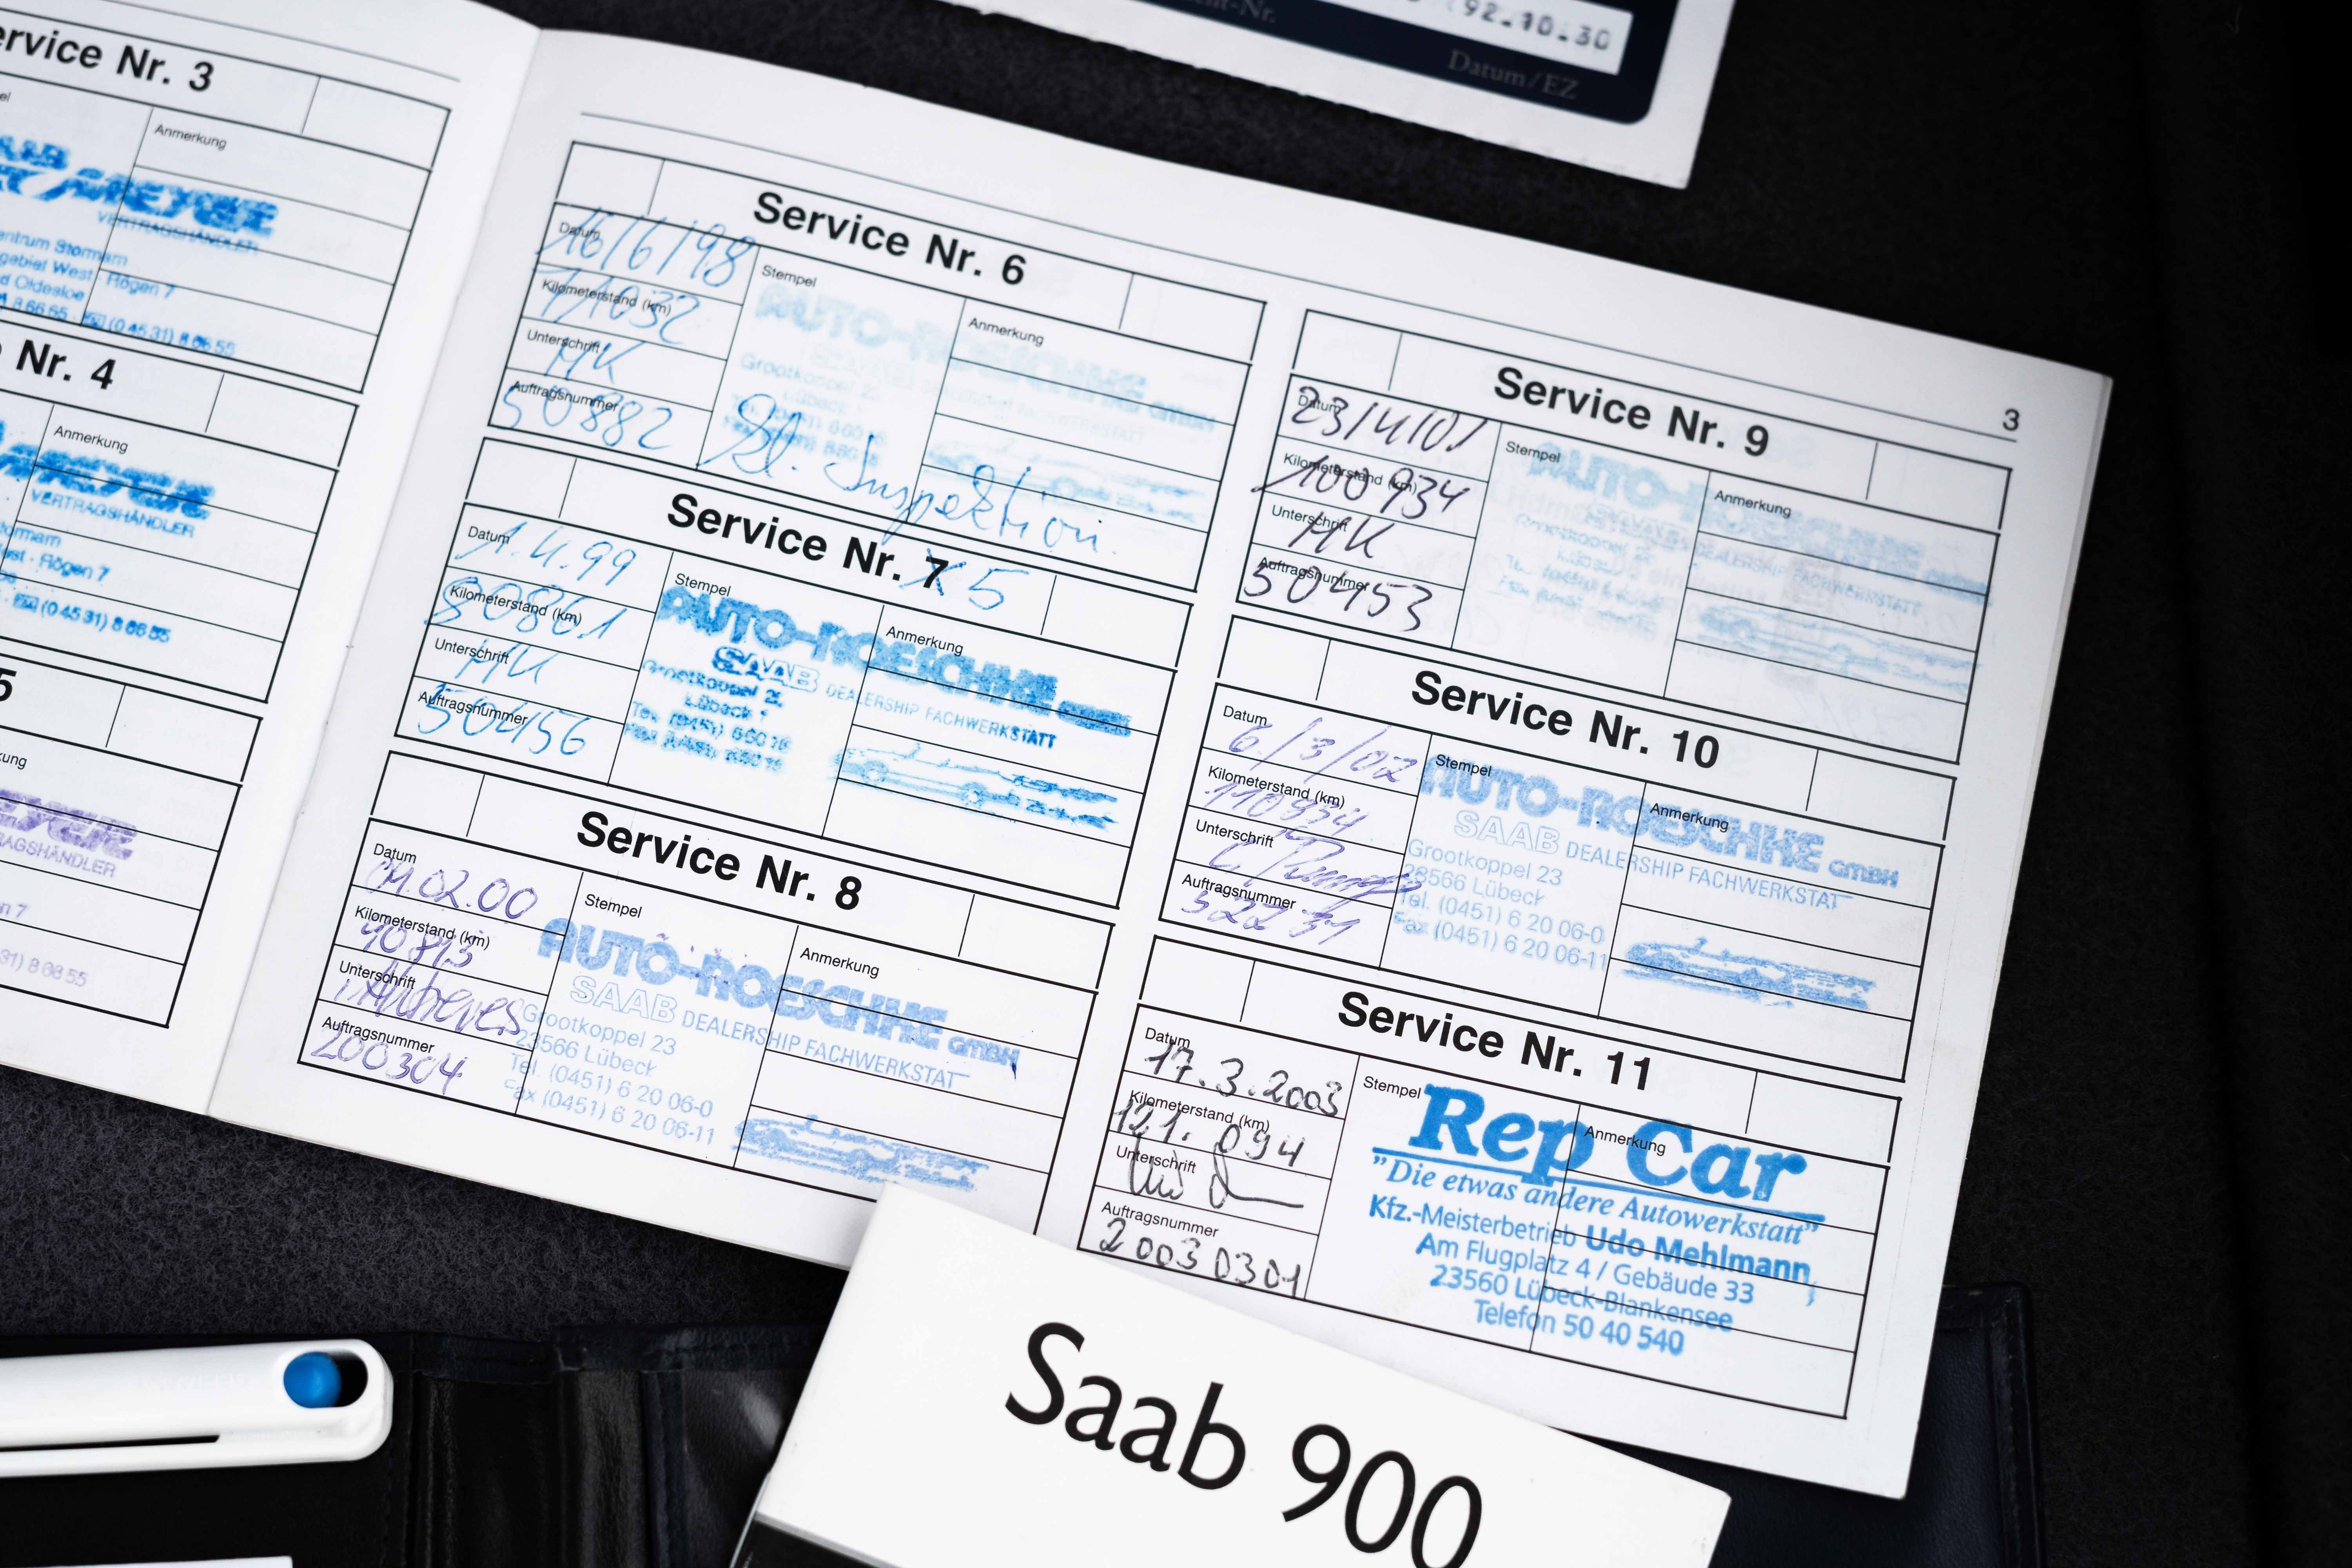 92.10.30
Datum/EZ
Service Nr. 3
Anmerkung
VERTRAGSHÄNDLER
Högen 7
(0 45 31) 8 06 55
Nr. 4
Anmerkung
VERTRAGSHÄNDLER
Högen 7
(0 45 31) 8 06 55
5
8 06 55
3
Service Nr. 6
Datum
16/6/98
Kilometerstand (km)
71032
Unterschrift
HK
Auftragsnummer
50882
Stempel
AUTO-ROESCHKE GmbH
Grootkoppel
Lübeck
Anmerkung
Inspektion.
Service Nr. 7 5
Datum
1.4.99
Kilometerstand (km)
80861
Unterschrift
HK
Auftragsnummer
50456
Stempel
AUTO-ROESCHKE GmbH
SAAB DEALERSHIP FACHWERKSTATT
Grootkoppel
Lübeck
Anmerkung
Service Nr. 8
Datum
02.00
Kilometerstand (km)
90813
Unterschrift
Auftragsnummer
200304
Stempel
AUTO-ROESCHKE GMBH
SAAB DEALERSHIP FACHWERKSTAT
Grootkoppel 23
23566 Lübeck
Tel. (0451) 6 20 06-0
Fax (0451) 6 20 06-11
Anmerkung
Service Nr. 9
Datum
23/4/01
Kilometerstand (km)
100934
Unterschrift
HK
Auftragsnummer
50453
Stempel
AUTO-ROESCHKE
DEALERSHIP FACHWERKSTATT
Anmerkung
Service Nr. 10
Datum
6/3/02
Kilometerstand (km)
110934
Unterschrift
Auftragsnummer
52231
Stempel
AUTO-ROESCHKE GMBH
SAAB DEALERSHIP FACHWERKSTAT
Grootkoppel 23
23566 Lübeck
Tel. (0451) 6 20 06-0
Fax (0451) 6 20 06-11
Anmerkung
Service Nr. 11
Datum
17.3.2003
Kilometerstand (km)
121.094
Unterschrift
Auftragsnummer
20030301
Stempel
Anmerkung
Rep Car
"Die etwas andere Autowerkstatt"
Kfz.-Meisterbetrieb Udo Mehlmann
Am Flugplatz 4 / Gebäude 33
23560 Lübeck-Blankensee
Telefon 50 40 540
Saab 900